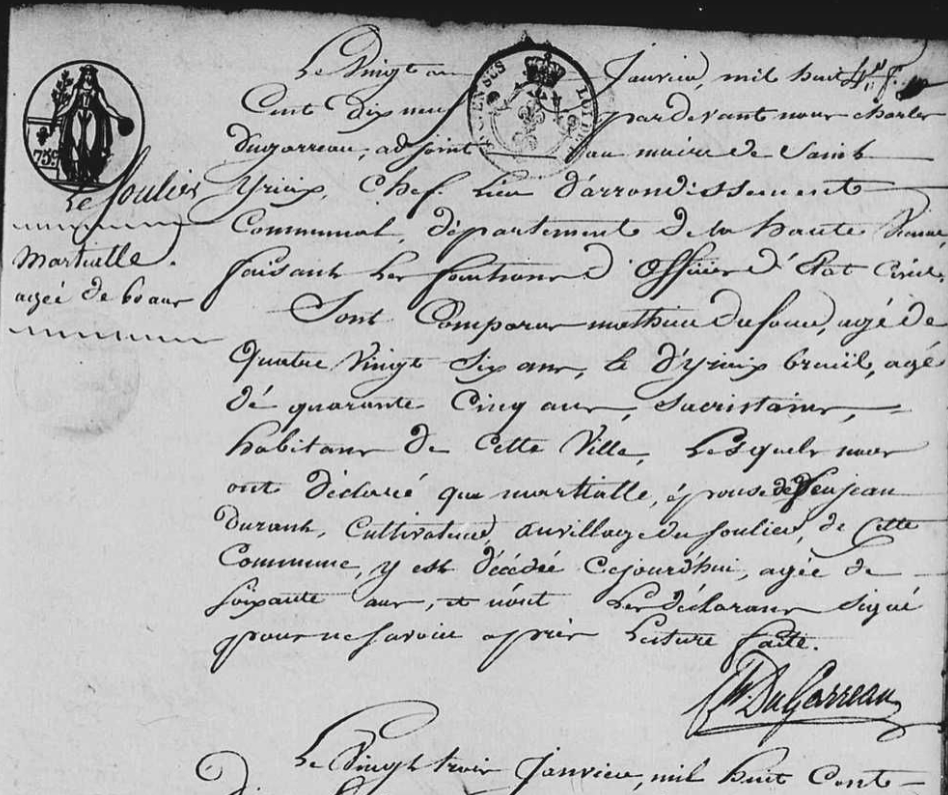 Le Soulier
Martialle
agée de 60 ans
Le Vingt Janvier, mil huit
Cent dix neuf pardevant nous charles
Dugarreau, adjoint au maire de Saint
Yrieix, Chef Lieu d'arrondissement
Communal, département de la haute Vienne
faisant les fonctions d'Officier d'Etat Civil
Sont Comparus mathieu Dufour, agé de
Quatre Vingt Six ans, & d'yrieix breuil, agé
dé quarante Cinq ans, Sacristains,
habitans de Cette Ville, Lesquels nous
ont déclaré que martialle, épouse de feu jean
Durant, Cultivateur, au village du Soulier, de Cette
Commune, y est décédé Cejourdhui, agée de
soixante ans, et n'ont Les déclarans signé
pour ne savoir après Lecture faite.
DuGarreau
Le Vingt trois Janvier, mil huit Cent